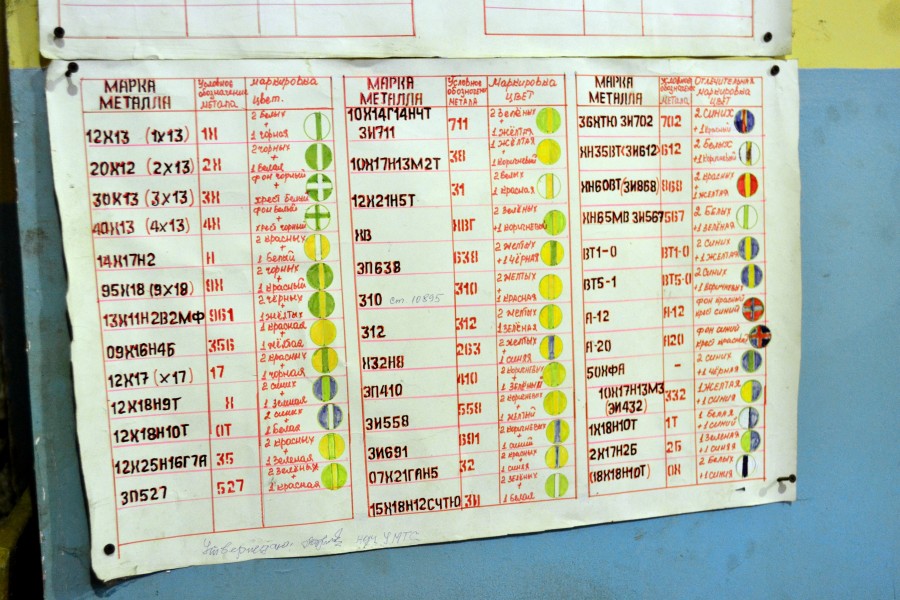 МАРКА МЕТАЛЛА Условное обозначение метала маркировка цвет.
12Х13 (1х13) 1Х 2 белых + 1 чорная
20Х12 (2х13) 2Х 2 чорных + 1 белая
30Х13 (3х13) 3Х фон чорный + крест белый
40Х13 (4х13) 4Х фон белый + крест чорный
14Х17Н2 Н 2 красных + 1 белый
95Х18 (9х18) 9Х 2 чорных + 1 красный
13Х11Н2В2МФ 961 2 чёрных + 1 жёлтых
09Х16Н4Б 356 1 красная + 1 жёлтая
12Х17 (х17) 17 2 красных + 1 чорная
12Х18Н9Т Я 2 синих + 1 зеленая
12Х18Н10Т 0Т 2 синих + 1 белая
12Х25Н16Г7А 35 2 красных + 1 зеленая
ЭП527 527 2 зелёных + 1 красная
МАРКА МЕТАЛЛА Условное обозначение метала Маркировка ЦВЕТ
10Х14Г14Н4Т ЭИ711 711 2 зелёных + 1 жёлтая
10Х17Н13М2Т 38 1 жёлтая + 1 коричневой
12Х21Н5Т 31 2 белых 1 красная
ХВГ 2 зелёных +1 коричневой
ЭП638 638 2 желтых +1 чёрная
310 ст. 10895 310 2 желтых 1 красная
312 312 2 желтых 1 зелёная
Х32Н8 263 2 желтых +1 синяя
ЭП410 410 2 коричневых + 1 зелёный
ЭИ558 558 2 коричневых + 1 желтый
ЭИ691 691 2 коричневых + 1 синий
07Х21ГАН5 32 2 красных + 1 синяя
15Х18Н12СЧТЮ ЭИ 2 зелёных + 1 белая
МАРКА МЕТАЛЛА Условное обозначение МЕТАЛА Отличительная маркировка ЦВЕТ
36ХТЮ ЭИ702 702 2 синих +1 красный
ХН35ВТ(ЭИ612) 612 2 белых +1 коричневой
ХН60ВТ(ЭИ868) 868 2 красных + 1 желтая
ХН65МВ ЭИ567 567 2 белых + 1 зелёная
ВТ1-0 ВТ1-0 2 синих + 1 желтая
ВТ5-1 2 синих + 1 коричневых
А-12 А12 фон красный крест синий
А-20 А20 фон синий крест красный
50ХФА - 2 синих + 1 чёрная
10Х17Н13М3 (ЭИ432) 332 1 желтая + 1 синия
1Х18Н10Т 1Т 1 белая +1 синий
2Х17Н2Б 2Б 1 зеленая + 1 синяя
(18Х18Н10Т) 0Х 2 белых +1 синия